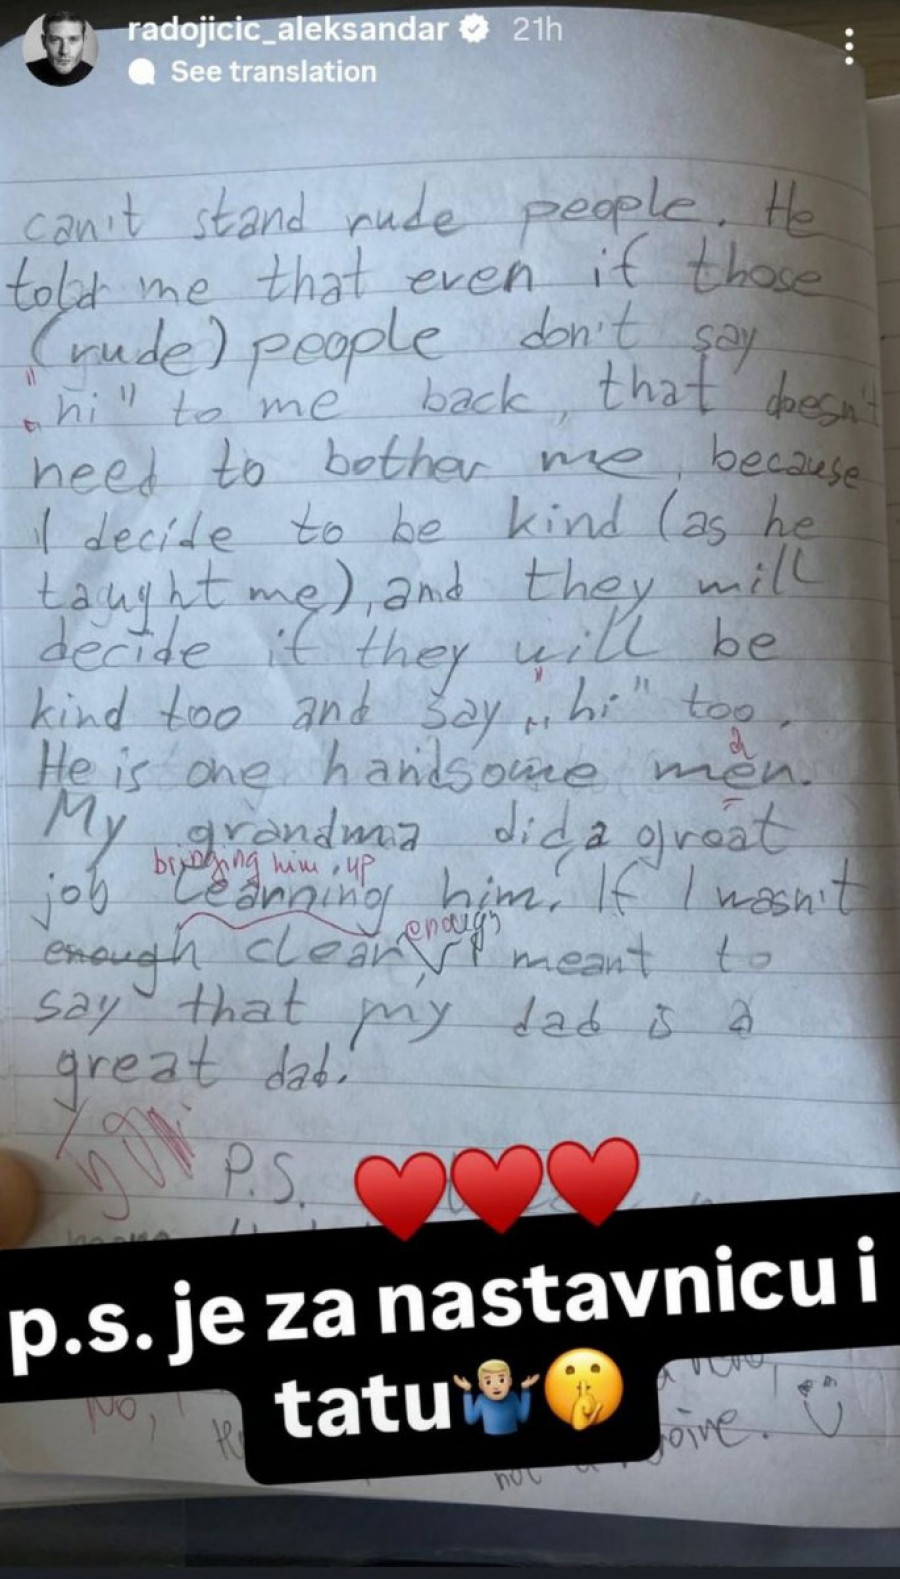 radojicic_aleksandar 21h
See translation
can't stand rude people. He
told me that even if those
(rude) people don't say
" „hi" to me back, that doesn't
need to bother me, because
I decide to be kind (as he
taught me), and they will
decide if they will be
kind too and say " „hi" too.
a
He is one handsome men.
My grandma did a great
bringing him up
job learning him. If I wasn't
enough
enough clear, I meant to
say that my dad is a
great dad.
P.S.
p.s. je za nastavnicu i
tatu
No,
not a